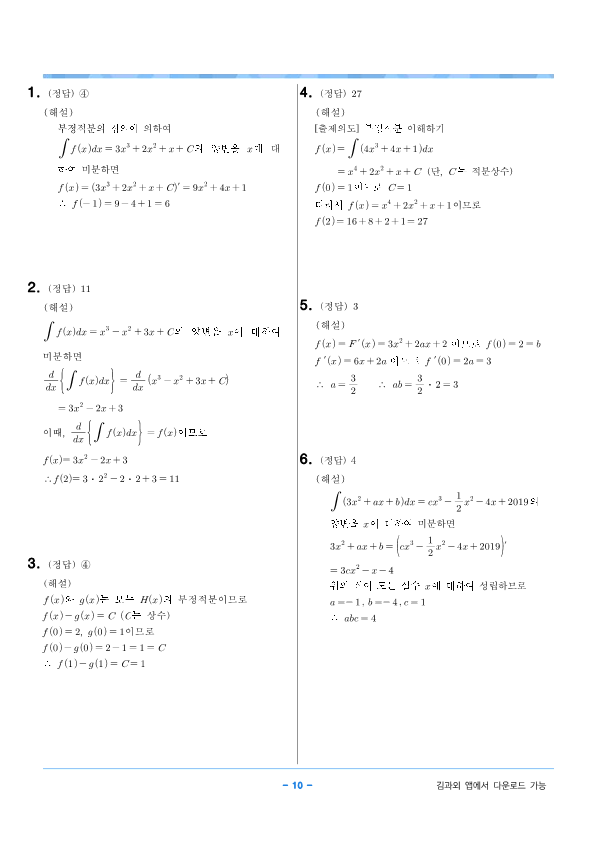 1. (정답) ④
(해설)
부정적분의 정의에 의하여
∫f(x)dx = 3x³ + 2x² + x + C의 양변을 x에 대
하여 미분하면
f(x) = (3x³ + 2x² + x + C)′ = 9x² + 4x + 1
∴ f(−1) = 9 − 4 + 1 = 6
2. (정답) 11
(해설)
∫f(x)dx = x³ − x² + 3x + C의 양변을 x에 대하여
미분하면
d/dx{∫f(x)dx} = d/dx(x³ − x² + 3x + C)
= 3x² − 2x + 3
이때, d/dx{∫f(x)dx} = f(x)이므로
f(x) = 3x² − 2x + 3
∴ f(2) = 3・2² − 2・2 + 3 = 11
3. (정답) ④
(해설)
f(x)와 g(x)는 모두 H(x)의 부정적분이므로
f(x) − g(x) = C (C는 상수)
f(0) = 2, g(0) = 1이므로
f(0) − g(0) = 2 − 1 = 1 = C
∴ f(1) − g(1) = C = 1
4. (정답) 27
(해설)
[출제의도] 부정적분 이해하기
f(x) = ∫(4x³ + 4x + 1)dx
= x⁴ + 2x² + x + C (단, C는 적분상수)
f(0) = 1이므로 C = 1
따라서 f(x) = x⁴ + 2x² + x + 1이므로
f(2) = 16 + 8 + 2 + 1 = 27
5. (정답) 3
(해설)
f(x) = F′(x) = 3x² + 2ax + 2 이므로 f(0) = 2 = b
f′(x) = 6x + 2a 이므로 f′(0) = 2a = 3
∴ a = 3/2 ∴ ab = 3/2・2 = 3
6. (정답) 4
(해설)
∫(3x² + ax + b)dx = cx³ − 1/2x² − 4x + 2019의
양변을 x에 대하여 미분하면
3x² + ax + b = (cx³ − 1/2x² − 4x + 2019)′
= 3cx² − x − 4
위의 식이 모든 실수 x에 대하여 성립하므로
a = −1, b = −4, c = 1
∴ abc = 4
- 10 -
김과외 앱에서 다운로드 가능